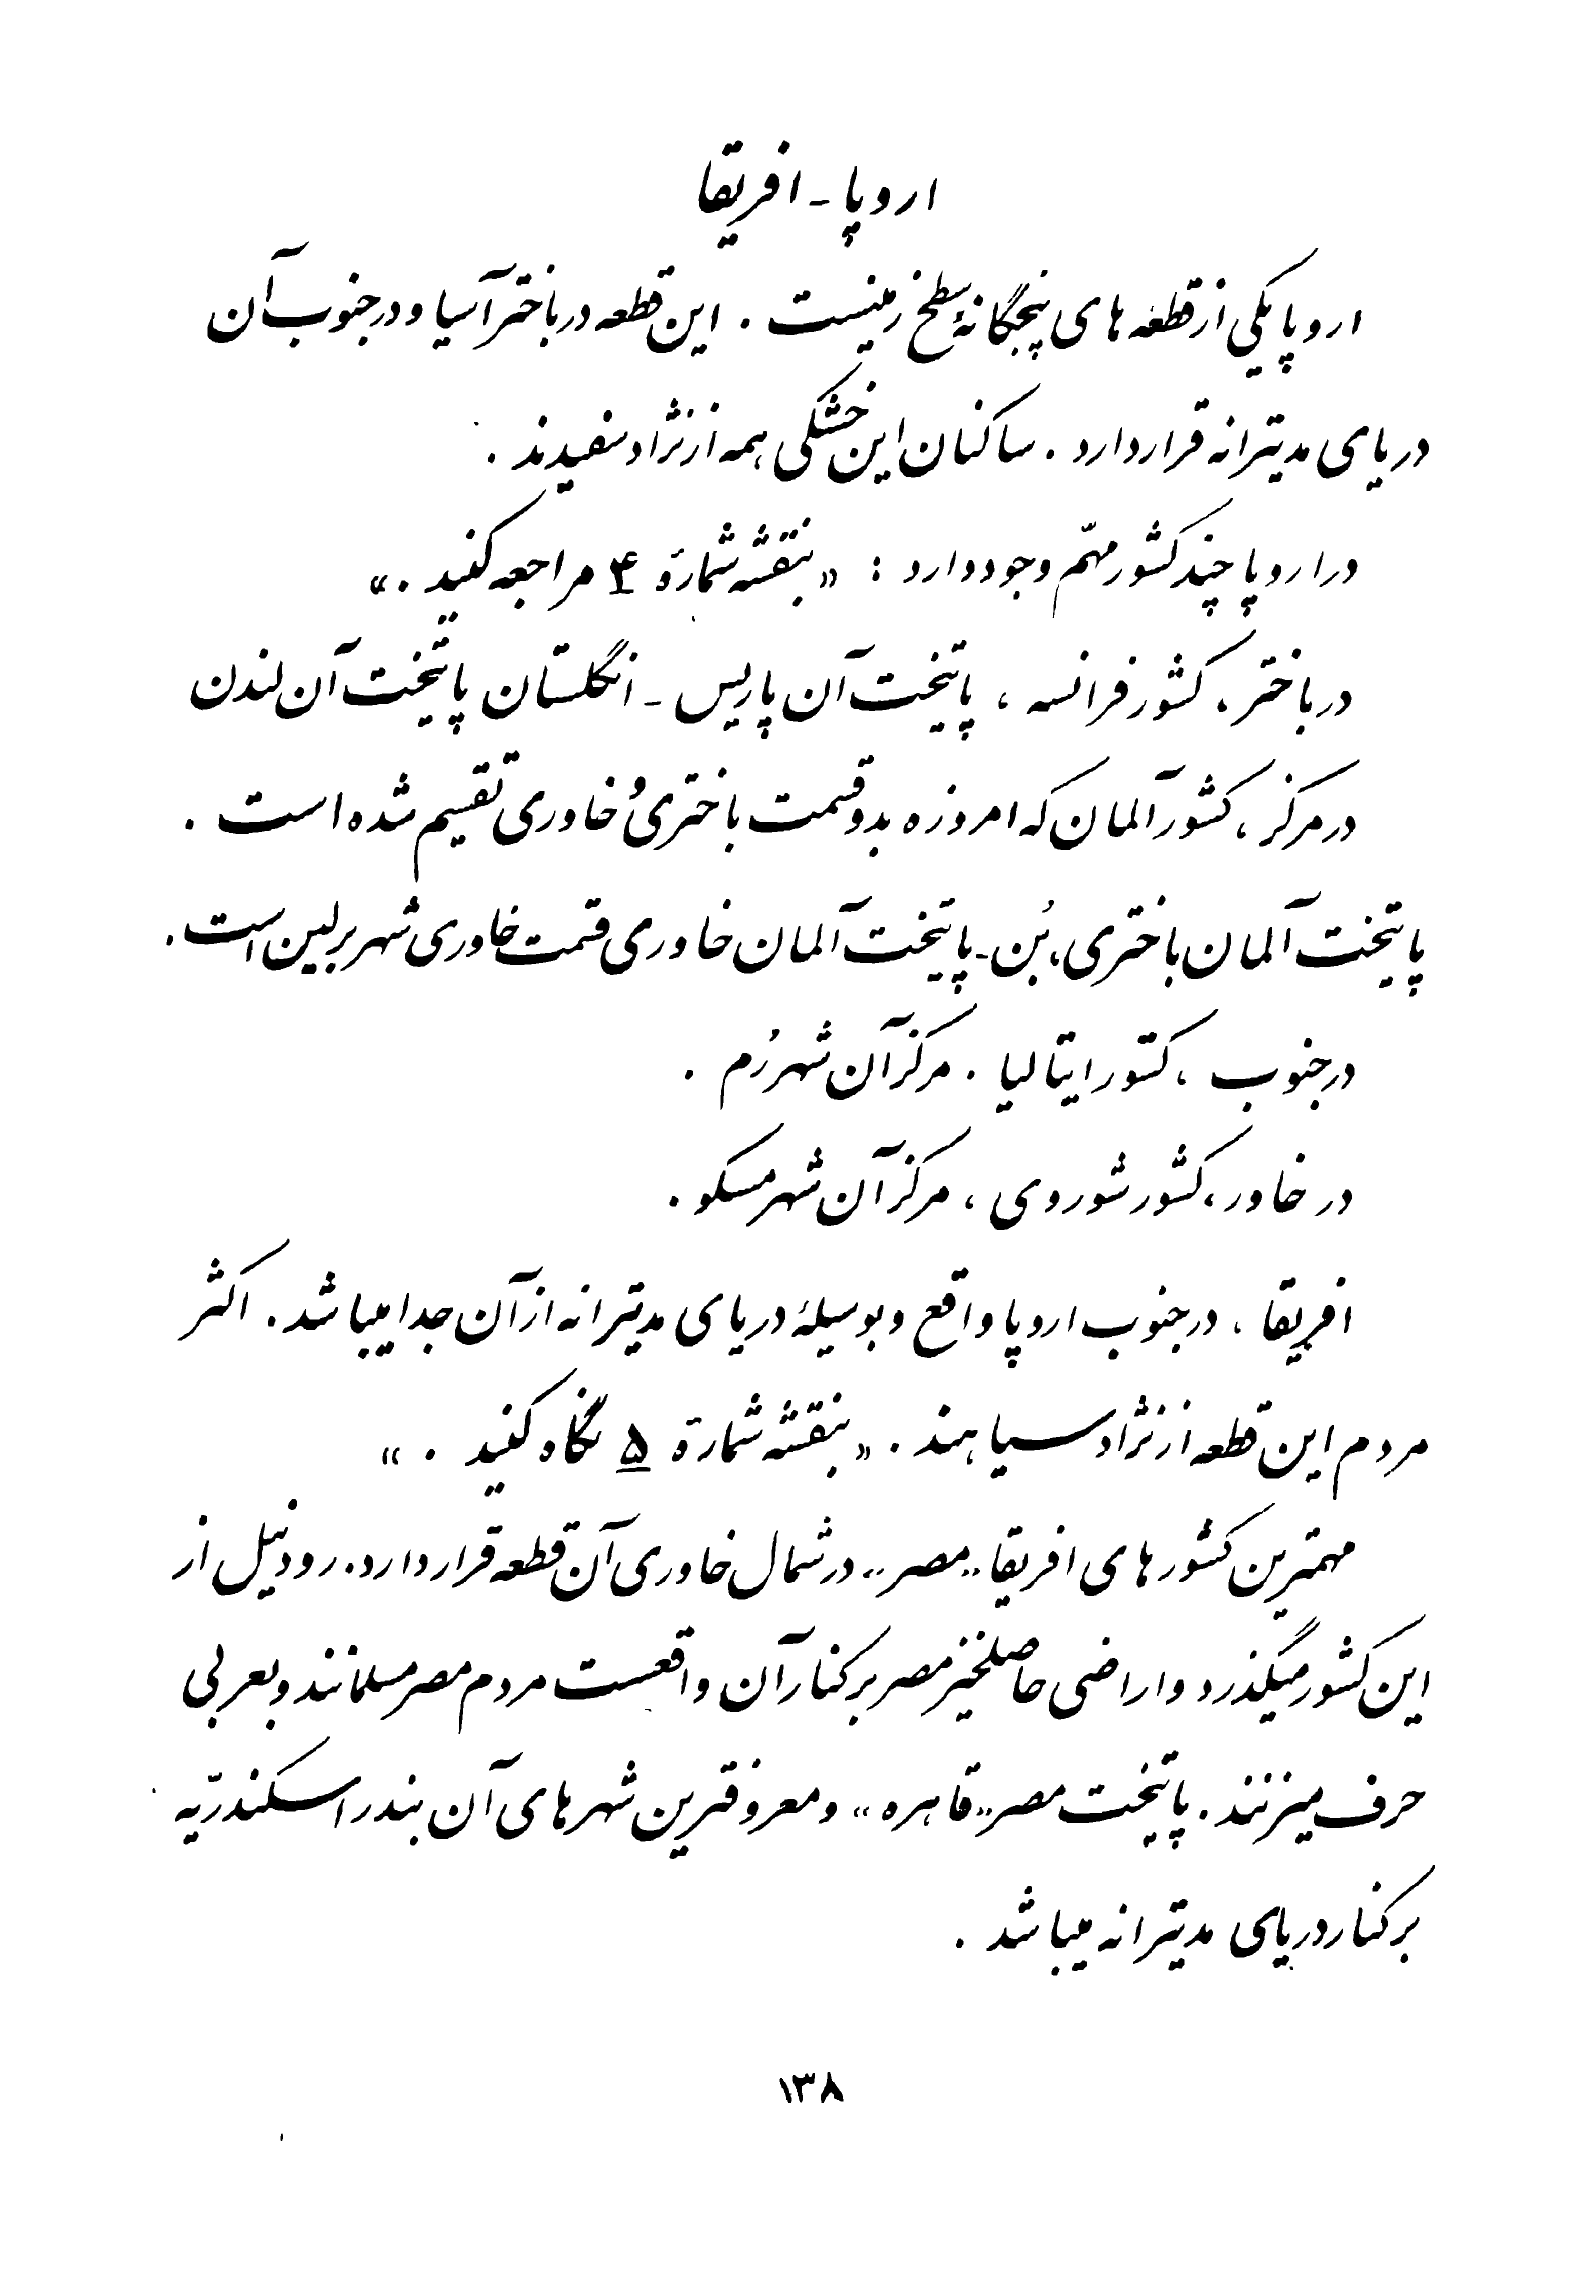 اروپا - افریقا
اروپا یکی از قطعه های پنجگانهٔ سطح زمینست . این قطعه در باختر آسیا و در جنوب آن
دریای مدیترانه قرار دارد . ساکنان این خشکی همه از نژاد سفیدند .
در اروپا چند کشور مهّم وجود دارد : « بنقشه شمارهٔ ۴ مراجعه کنید . »
در باختر ، کشور فرانسه ، پایتخت آن پاریس - انگلستان پایتخت آن لندن
در مرکز ، کشور آلمان که امروزه بدو قسمت باختری وُ خاوری تقسیم شده است .
پایتخت آلمان باختری ، بُن - پایتخت آلمان خاوری قسمت خاوری شهر برلین است .
در جنوب ، کشور ایتالیا . مرکز آن شهر رُم .
در خاور ، کشور شوروی ، مرکز آن شهر مسکو .
افریقا ، در جنوب اروپا واقع و بوسیلهٔ دریای مدیترانه از آن جدا میباشد . اکثر
مردم این قطعه از نژاد سیاهند . « بنقشه شمارهٔ ۵ نگاه کنید . »
مهمترین کشورهای افریقا « مصر » در شمال خاوری آن قطعه قرار دارد . رود نیل از
این کشور میگذرد و اراضی حاصلخیز مصر بر کنار آن واقعست مردم مصر مسلمانند و بعربی
حرف میزنند . پایتخت مصر « قاهره » و معروفترین شهرهای آن بندر اسکندرّیه
بر کنار دریای مدیترانه میباشد .
۱۳۸